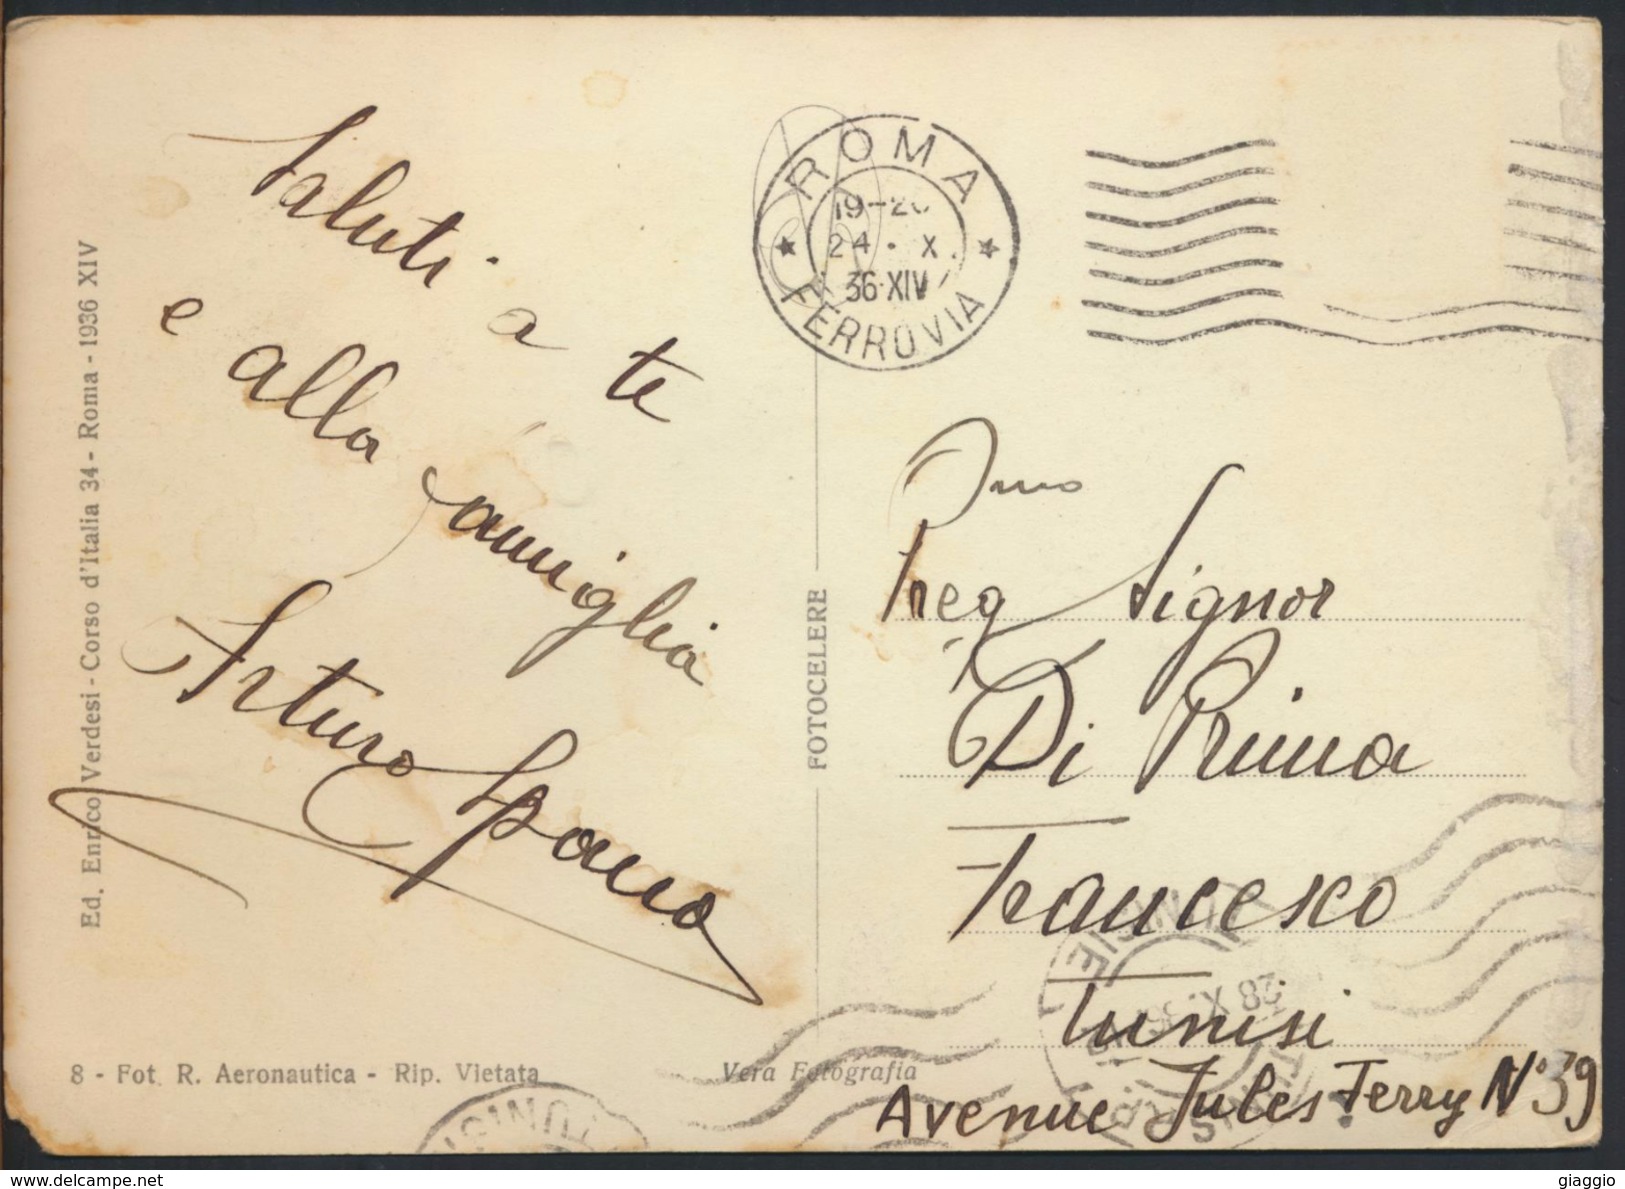 Saluti a te
e alla famiglia
Arturo Spano
Ed. Enrico Verdesi - Corso d'Italia 34 - Roma - 1936 XIV
8 - Fot. R. Aeronautica - Rip. Vietata
Vera Fotografia
FOTOCELERE
ROMA
19-20
24 · X.
36·XIV
FERROVIA
Preg Signor
Di Prima
Francesco
Tunisi
Avenue Jules Ferry N° 39
TUNIS R.P.
TUNISIE
28 X
TUNIS
giaggio
delcampe.net